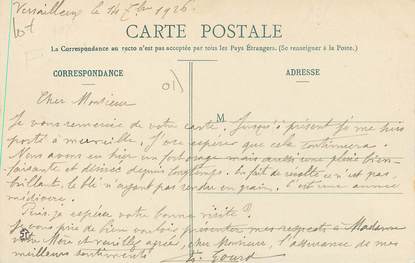 Versailleux le 14 7bre 1926
CARTE POSTALE
La Correspondance au recto n'est pas acceptée par tous les Pays Étrangers. (Se renseigner à la Poste.)
CORRESPONDANCE
ADRESSE
Cher Monsieur
M
Je vous remercie de votre carte. Jusqu'à présent je me suis
porté à merveille, j'ose espérer que cela continuera.
Nous avons eu hier un fort orage mais aussi une pluie bien-
faisante et désirée depuis longtemps. En fait de récolte ce n'est pas
brillant, le blé n'ayant pas rendu en grain. C'est une année
médiocre.
Puis-je espérer votre bonne visite?
Je vous prie de bien vouloir présenter mes respects à Madame
votre Mère et veuillez agréer, cher Monsieur, l'assurance de mes
meilleurs sentiments